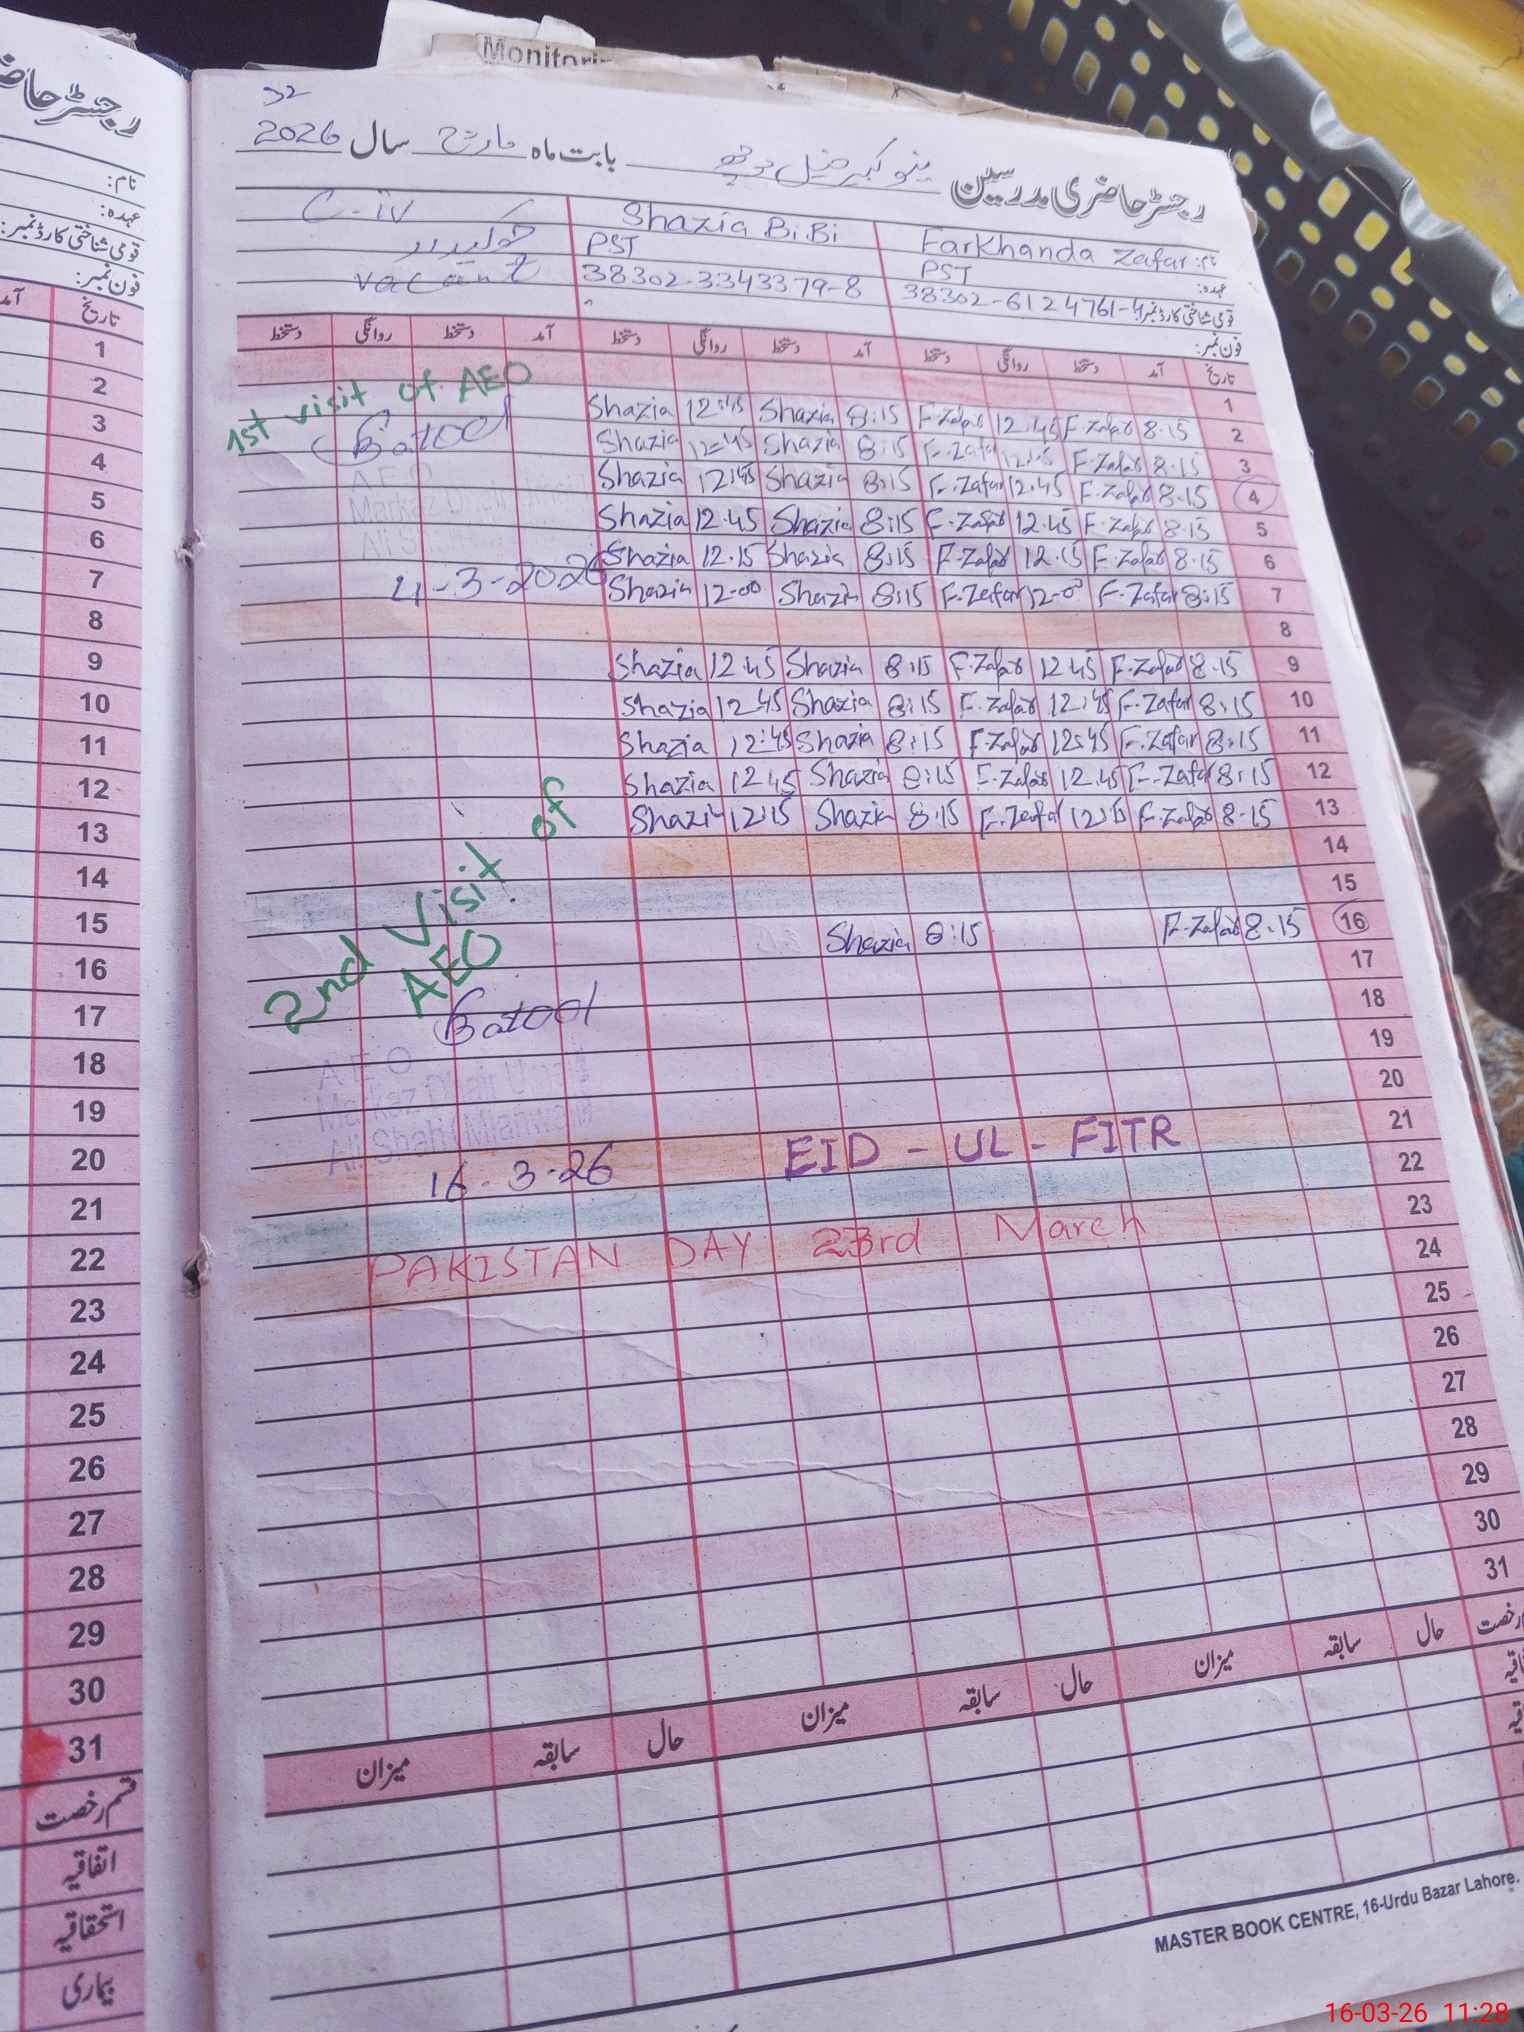 Monitori
رجسٹر حاضر
32
رجسٹر حاضری مدرسین بابت ماہ مارچ سال 2026
نام: Farkhanda Zafar Shazia BiBi C-iv
عہدہ: PST PST چوکیدار
قومی شناختی کارڈ نمبر: 38302-6124761-4 38302-3343379-8 vacant
فون نمبر:
تاریخ آمد دستخط روانگی دستخط آمد دستخط روانگی دستخط آمد دستخط روانگی دستخط
1
2 8.15 F.Zafar 12.45 F.Zafar 8:15 Shazia 12:45 Shazia
3 8.15 F.Zafar F.Zafar 8:15 Shazia 12:45 Shazia
4 8.15 F.Zafar 12.45 F.Zafar 8:15 Shazia 12:45 Shazia
5 8.15 F.Zafar 12.45 F.Zafar 8:15 Shazia 12.45 Shazia
6 8.15 F.Zafar 12.15 F.Zafar 8:15 Shazia 12.15 Shazia
7 8:15 F.Zafar 12-0 F.Zafar 8:15 Shazia 12-00 Shazia
8
9 8.15 F.Zafar 12.45 F.Zafar 8:15 Shazia 12.45 Shazia
10 8:15 F.Zafar 12:45 F.Zafar 8:15 Shazia 12 45 Shazia
11 8:15 F.Zafar 12:45 F.Zafar 8:15 Shazia 12:45 Shazia
12 8:15 F.Zafar 12.45 F.Zafar 8:15 Shazia 12 45 Shazia
13 8.15 F.Zafar 12:15 F.Zafar 8:15 Shazia 12:15 Shazia
14
15
16 8.15 F.Zafar 8:15 Shazia
17
18
19
20
21 EID - UL - FITR
22
23 PAKISTAN DAY 23rd March
24
25
26
27
28
29
30
31
1st visit of AEO
Batool
A E O
Markaz
Ali S
4-3-2026
2nd Visit of
AEO
Batool
A E O
Markaz Dhair Umaid
Ali Shah (Mianwali)
16-3-26
رخصت حال سابقہ میزان حال سابقہ میزان حال سابقہ میزان
MASTER BOOK CENTRE, 16-Urdu Bazar Lahore.
نام:
عہدہ:
قومی شناختی کارڈ نمبر:
فون نمبر:
تاریخ آمد
1
2
3
4
5
6
7
8
9
10
11
12
13
14
15
16
17
18
19
20
21
22
23
24
25
26
27
28
29
30
31
قسم رخصت
اتفاقیہ
استحقاقیہ
بیماری
16-03-26 11:28